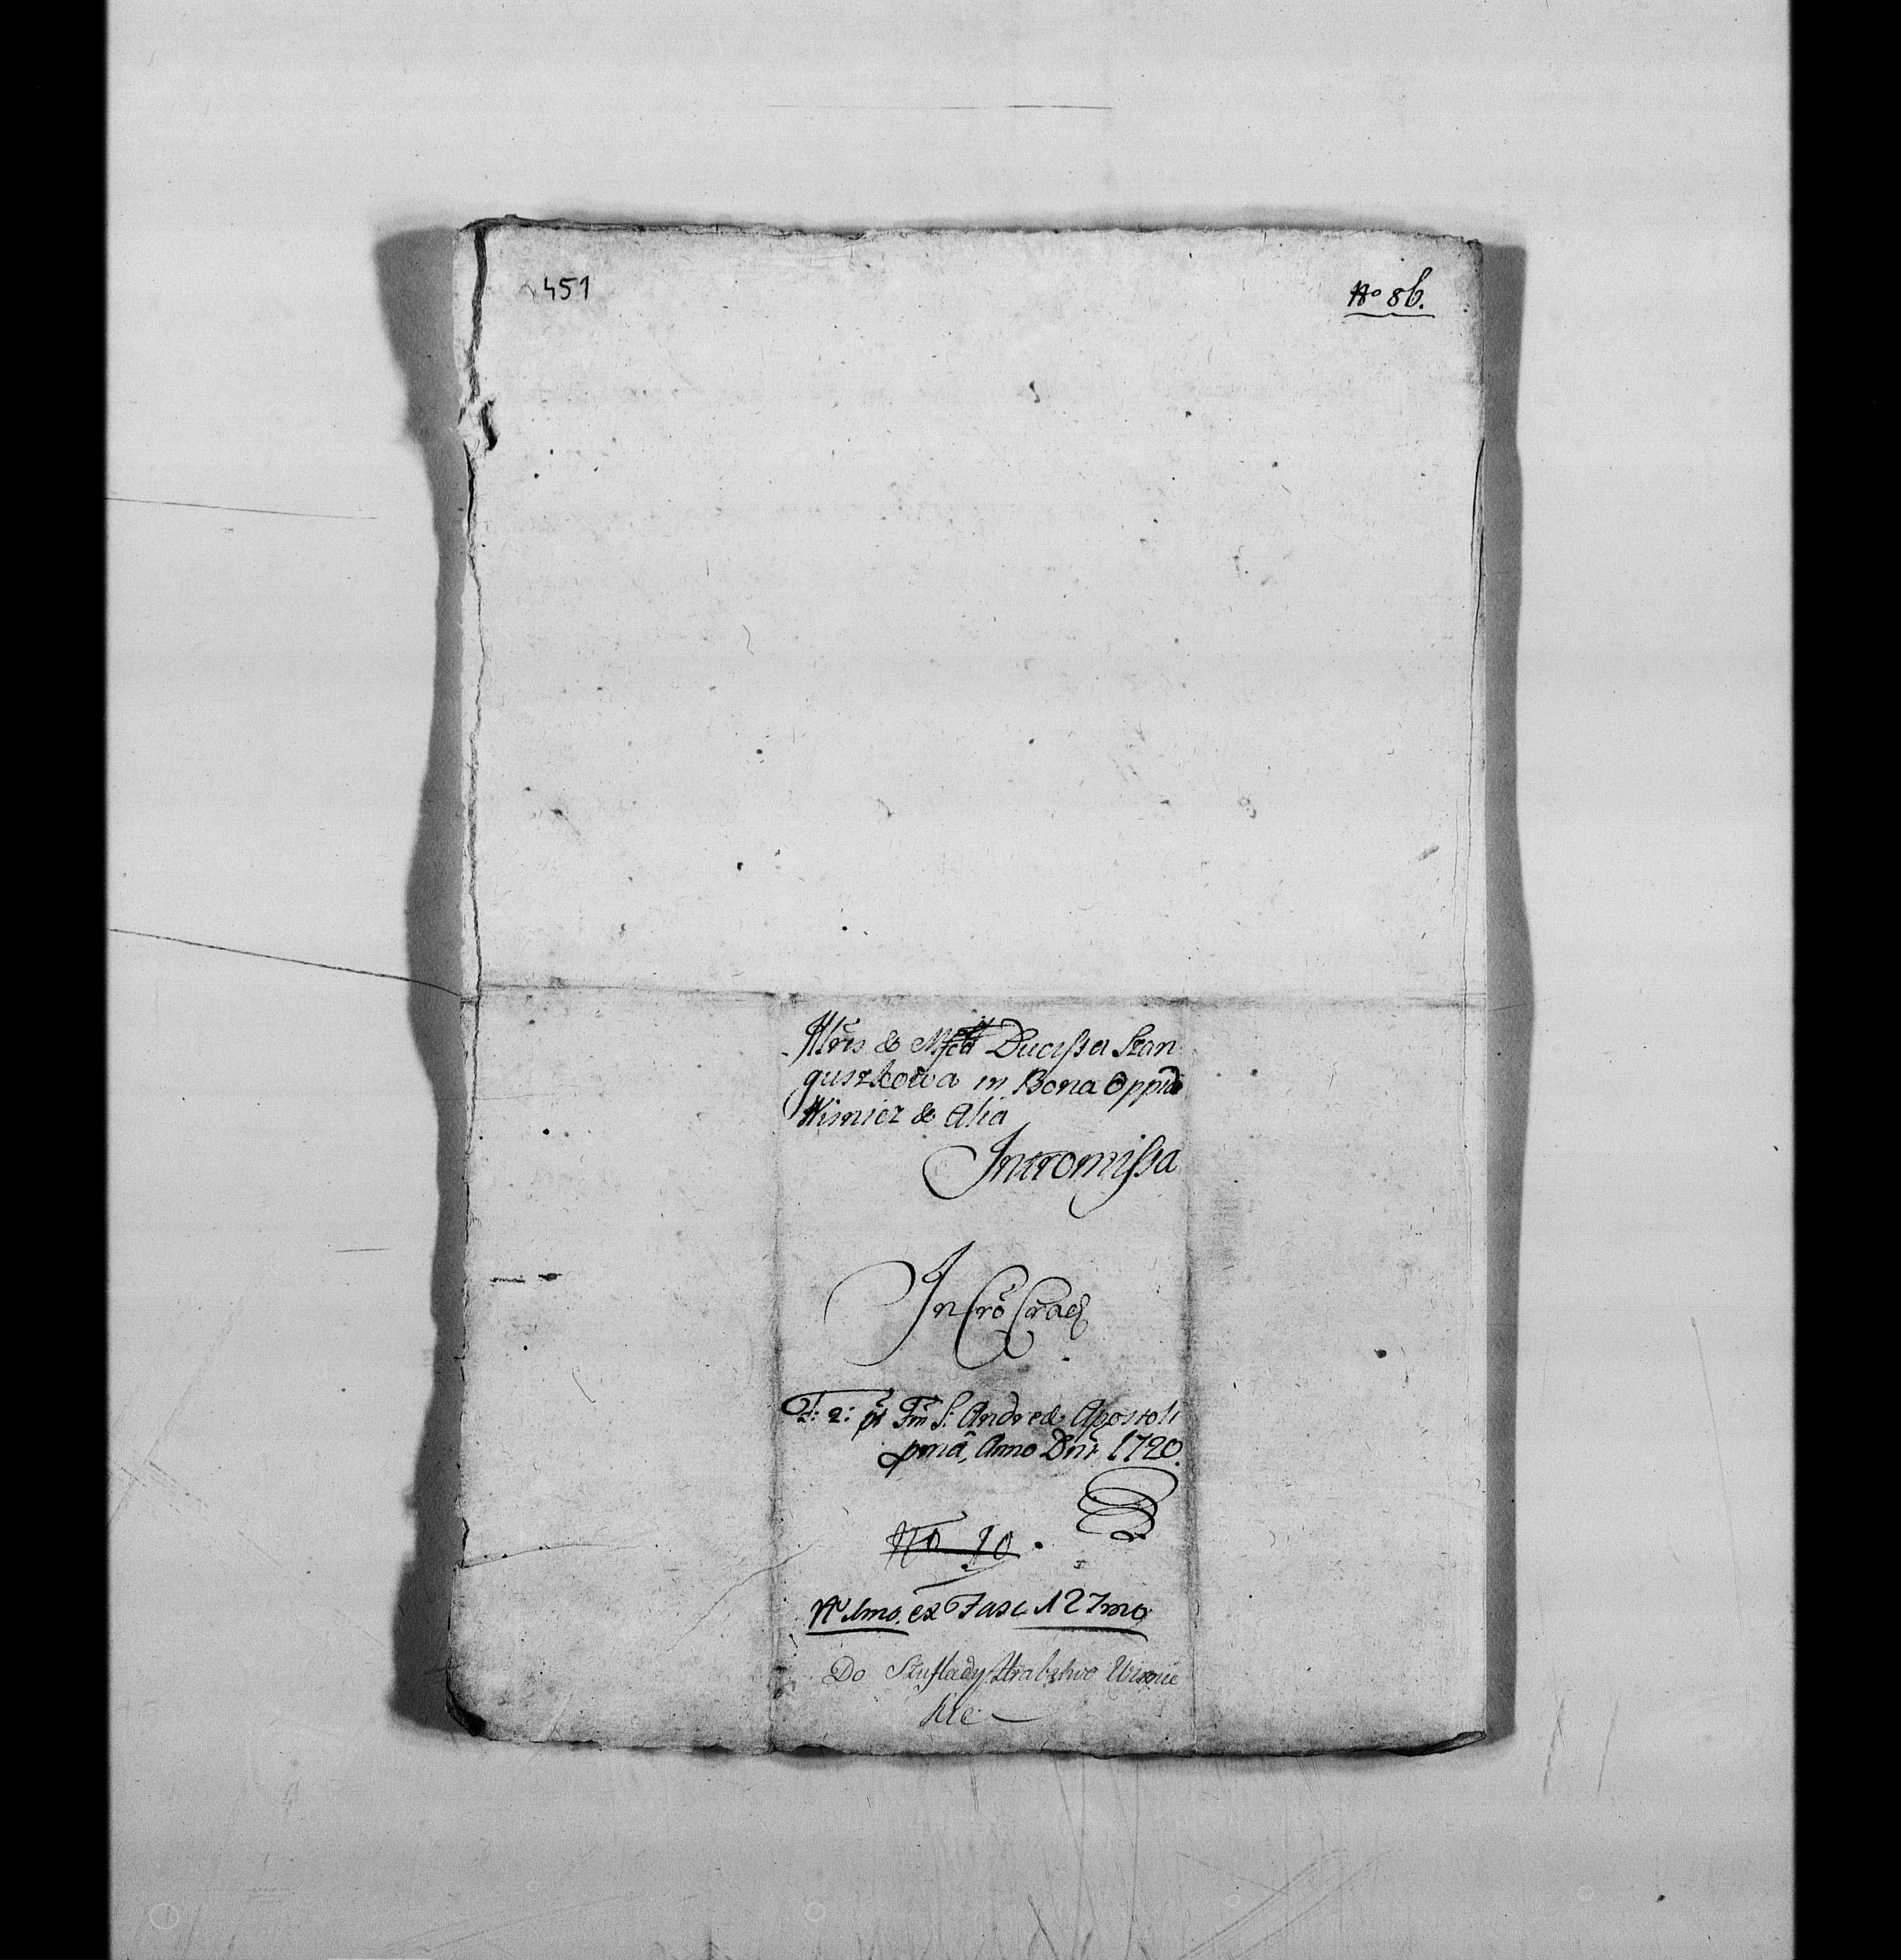 451
No 86.
Illris & Mfca Ducissa San
guszkowa in Bona Oppid
Wisnicz & Alia
Intromissa
In Cro Crac
F: 2: pt Fm S: Andreæ Apostoli
pmâ, Anno Dni 1720.
No 10.
No 1mo. ex Fasc 127mo
Do Szuflady Hrabstwo Wisnic
kie